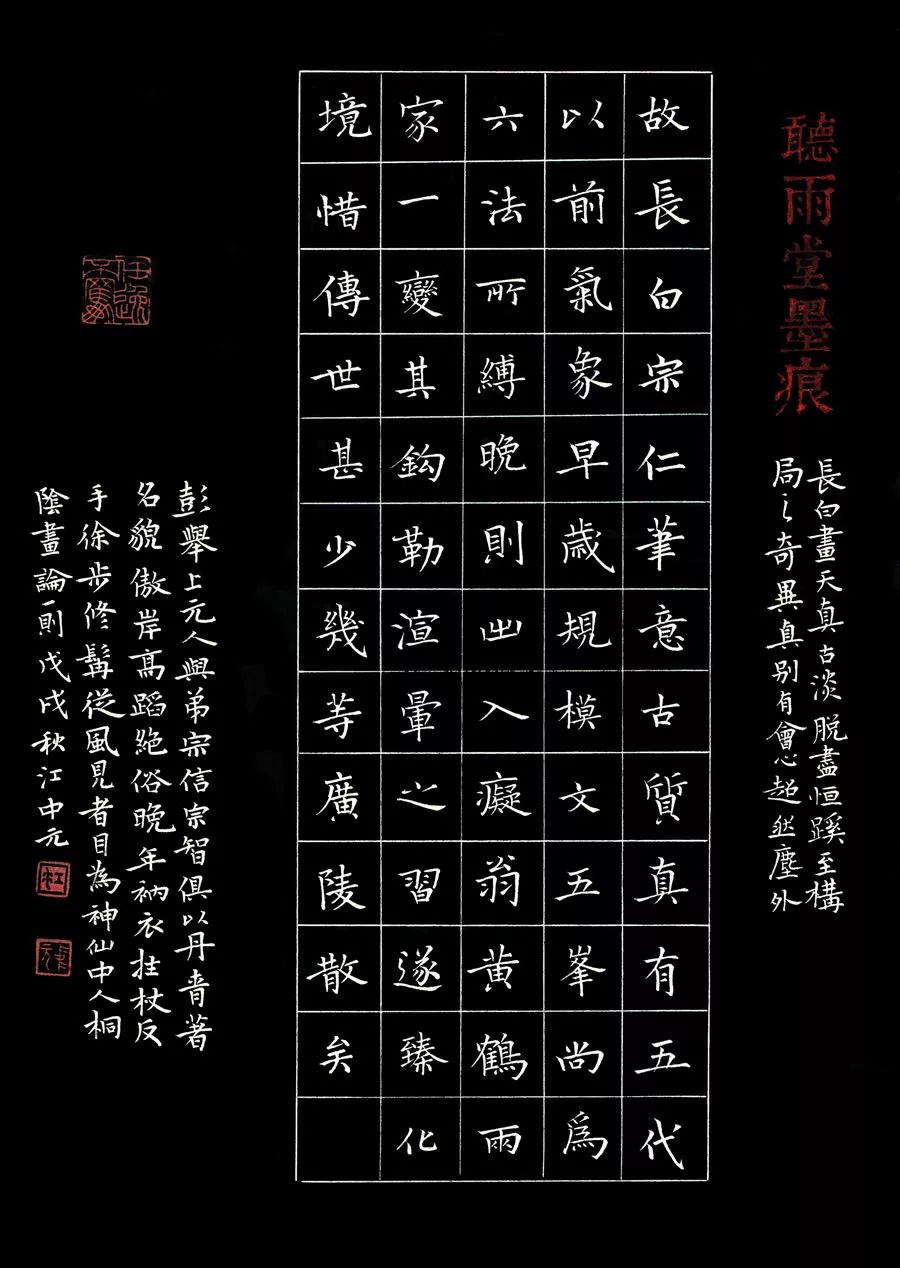 聽雨堂墨痕
長白畫天真古淡脫盡恒蹊至構
局之奇異真别有會心超然塵外
故長白宗仁筆意古質真有五代
以前氣象早歲規模文五峯尚爲
六法所縛晚則出入癡翁黄鶴兩
家一變其鈎勒渲暈之習遂臻化
境惜傳世甚少幾等廣陵散矣
彭舉上元人與弟宗信宗智俱以丹青著
名貌傲岸高蹈絶俗晚年衲衣拄杖反
手徐步修髯從風見者目為神仙中人桐
陰畫論一則戊戌秋江中元
江